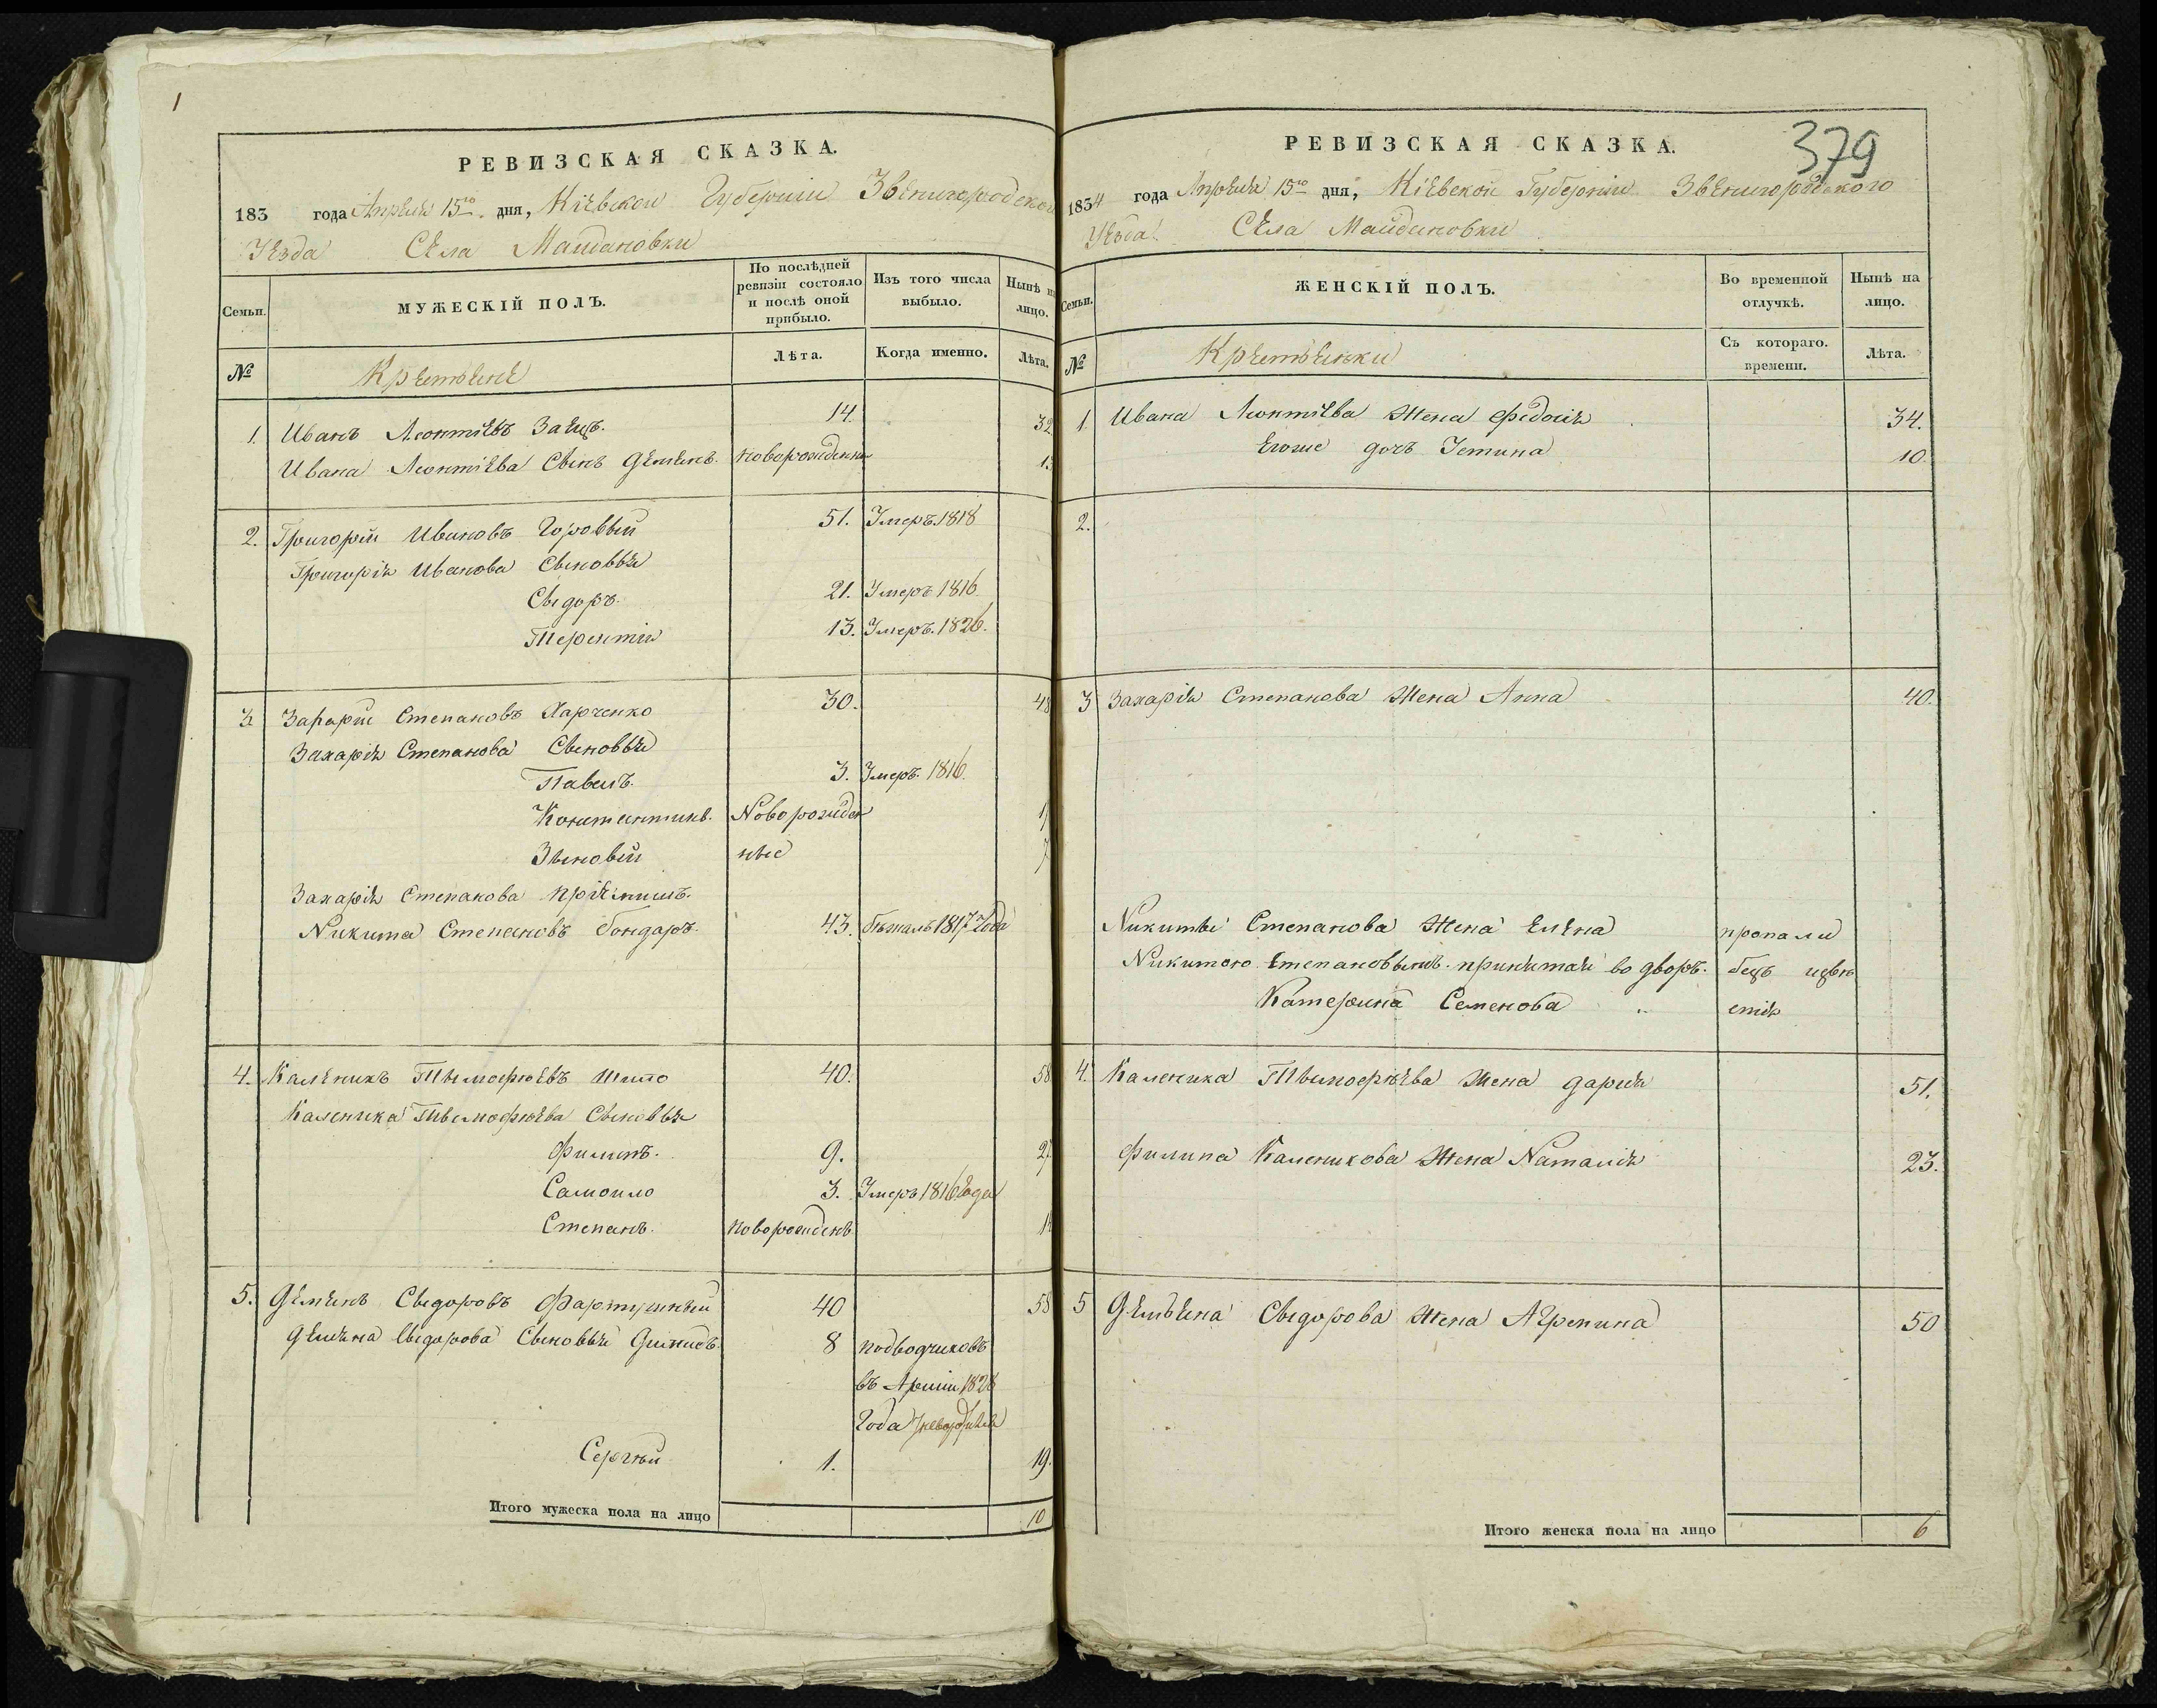 1
РЕВИЗСКАЯ СКАЗКА.
183 года Апреля 15го дня, Кіевской Губерніи Звенигородског
Уезда Села Майдановки
Семьи.
МУЖЕСКІЙ ПОЛЪ.
По послѣдней ревизіи состояло и послѣ оной прибыло.
Изъ того числа выбыло.
Нынѣ на лицо.
№
Крестяне
Лѣта.
Когда именно.
Лѣта.
1. Иванъ Леонтіевъ Заецъ. 14. 32
Ивана Леонтіева Сынъ Демянъ. новорожденны 13
2. Григорій Ивановъ Горовый 51. Умеръ 1818
Григорія Иванова Сыновья
Сыдоръ. 21. Умеръ 1816
Терентій 13. Умеръ. 1826.
3 Захарій Степановъ Харченко 30. 48
Захарія Степанова Сыновья
Павелъ. 3. Умеръ. 1816.
Константинъ. Новорожден 1
Зыновій ные 7
Захарія Степанова пріемышъ.
Никита Степановъ бондарь. 43. бежалъ 1817 Года
4. Каленикъ Тымофѣевъ Шило 40. 58
Каленика Тымофѣева Сыновья
Филипъ. 9. 27
Самоило 3. Умеръ 1816 года
Степанъ. новорожденъ 1
5. Демянъ Сыдоровъ 40 58
Демяна Сыдорова Сыновья Динисъ. 8 подводчиковъ
въ Арміи 1828
Года
Сергѣй 1. 19.
Итого мужеска пола на лицо 10
РЕВИЗСКАЯ СКАЗКА.
379
1834 года Апреля 15го дня, Кіевской Губерніи Звенигородского
Уезда Села Майдановки
Семьи.
ЖЕНСКІЙ ПОЛЪ.
Во временной отлучкѣ.
Нынѣ на лицо.
№
Крестянки
Съ котораго. времени.
Лѣта.
1 Ивана Леонтіева Жена Федосія 34.
Егоже дочъ Устина 10.
2.
3 Захарія Степанова Жена Анна 40.
Никиты Степанова Жена Елена пропали
Никитою Степановымъ. принятая во дворъ. безъ извѣ
Катерина Семенова стія
4. Каленика Тымофѣева Жена Дарія 51.
Филипа Каленикова Жена Наталія 23.
5 Демьяна Сыдорова Жена Агрепина 50
Итого женска пола на лицо 6